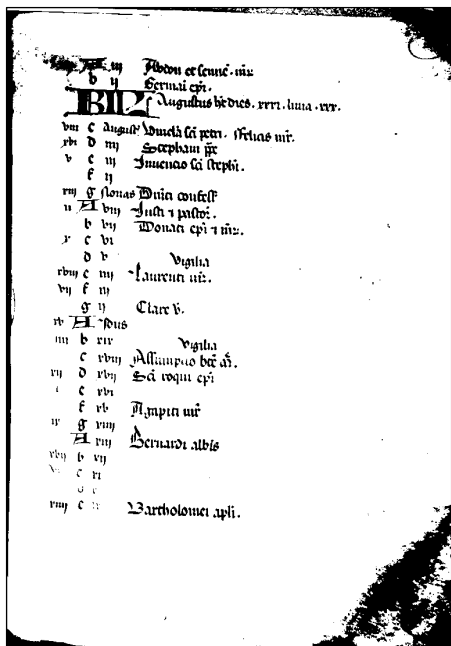 A iij Abdon et sennē. mr̄
b ij Germai ep̄i.
KL Augustus h̄t dies. xxxi. luna. xxx.
viii c August' Vincl̄a sc̄i petri. ffelicis mr̄.
xvi d iiij Stephani p̄p̄e
v e iij Inuencio sc̄i steph̄i.
f ij
xiij g Nonas Dn̄ici confess'
ij A viij Iusti ⁊ pastor̄.
b vij Donati ep̄i ⁊ mr̄.
x c vi
d v Vigilia
xviij e iiij Laurenti mr̄.
vij f iij
g ij Clare v̄.
xv A Idus
iiij b xix Vigilia
c xviij Assumptio bt̄e m̄.
xij d xvij Sc̄i roqui ep̄i
i e xvi
f xv Agapiti mr̄
ix g xiiij
A xiij Bernardi abb̄is
xvij b xij
vi c xi
d x
xiiij e ix Bartholomei apl̄i.